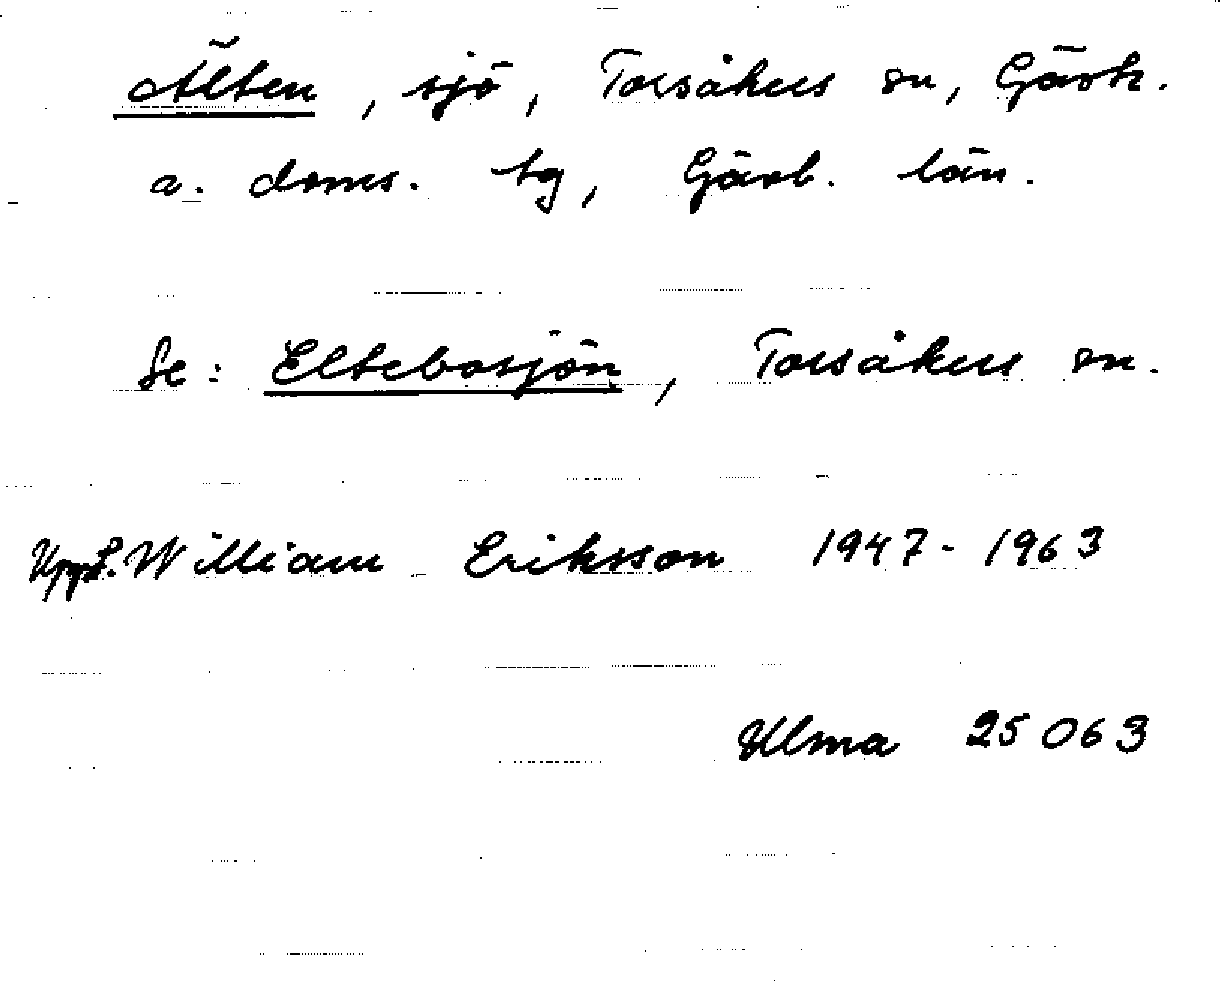 Älten, sjö, Torsåkers sn, Gästr.
ö. doms. tg, Gävleb. län.
Se: Eltebosjön, Torsåkers sn.
Uppt. William Eriksson 1947-1963
Ulma 25063